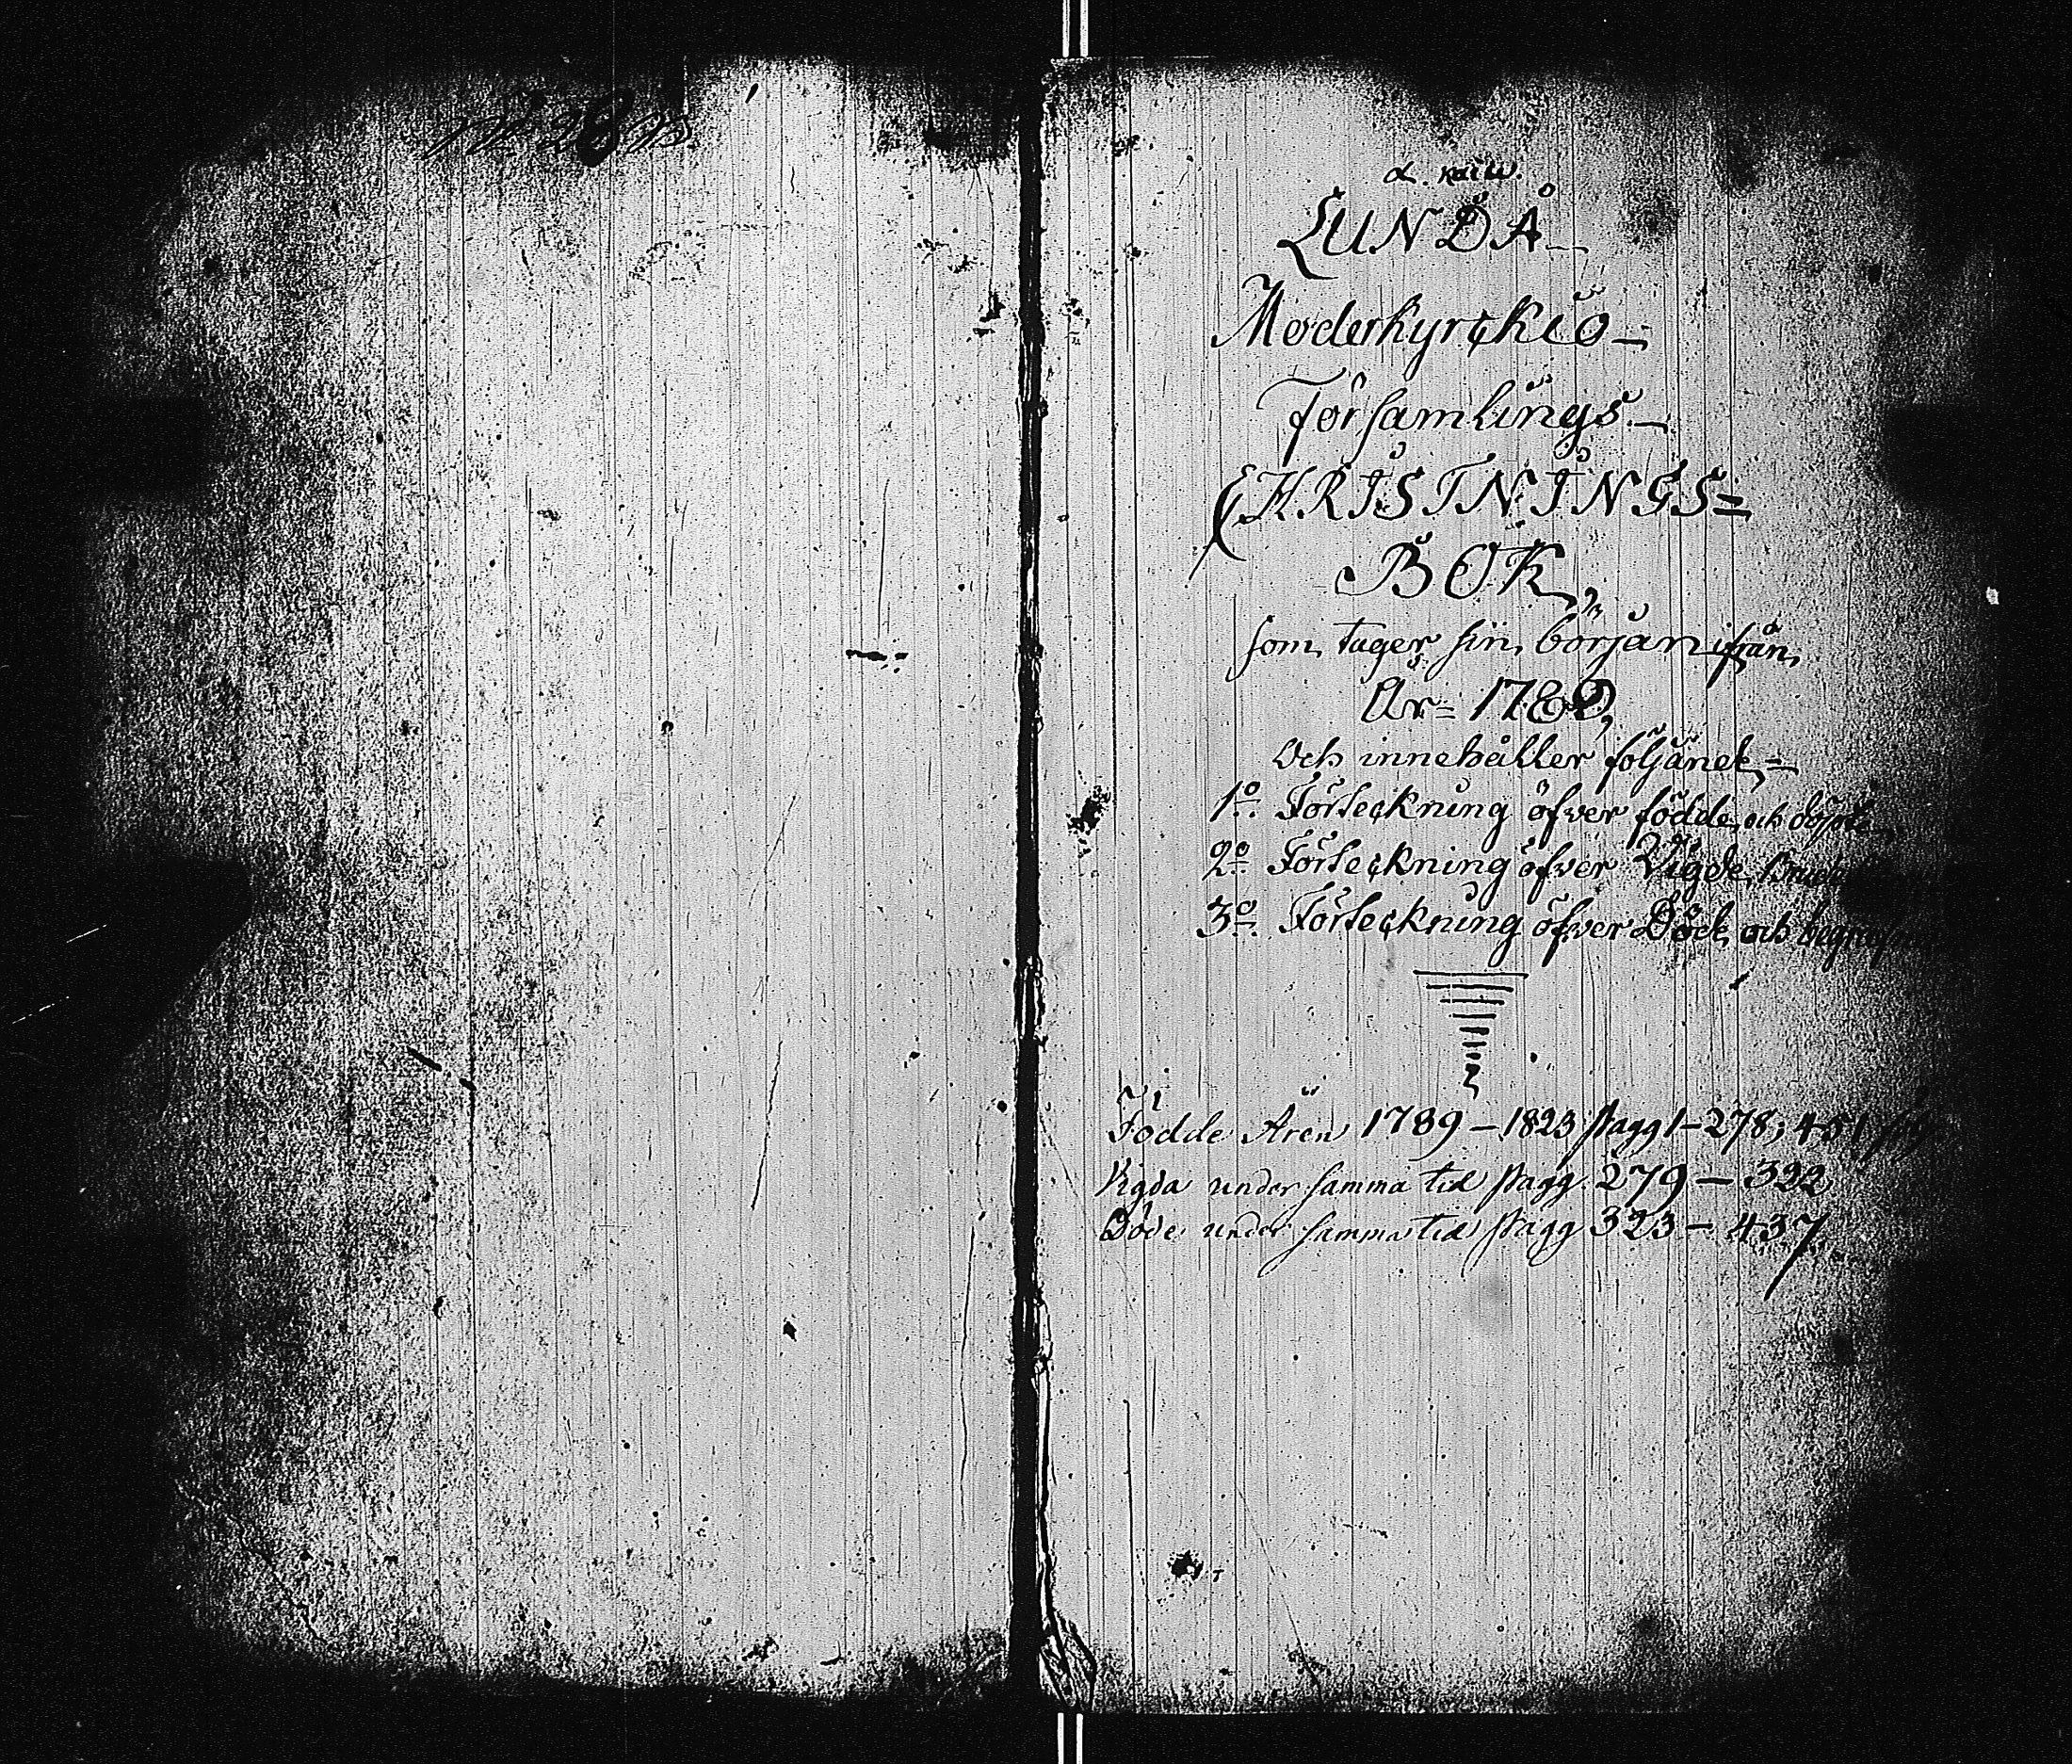 LUNDÅ
Moderkyrckio-
Församlings-
CHRISTNINGS=
BOK,
som tager sin början ifrån
År= 1789,
Och innehåller följande,=
1o. Förteckning öfver födde och döpte
2o. Förteckning öfver Vigde
3o. Förteckning öfver Döde och
Födde Åren 1789 – 1823 pagg 1–278; 451
Vigda under samma tid pagg. 279 – 322
Döde under samma tid pagg 323 – 437.